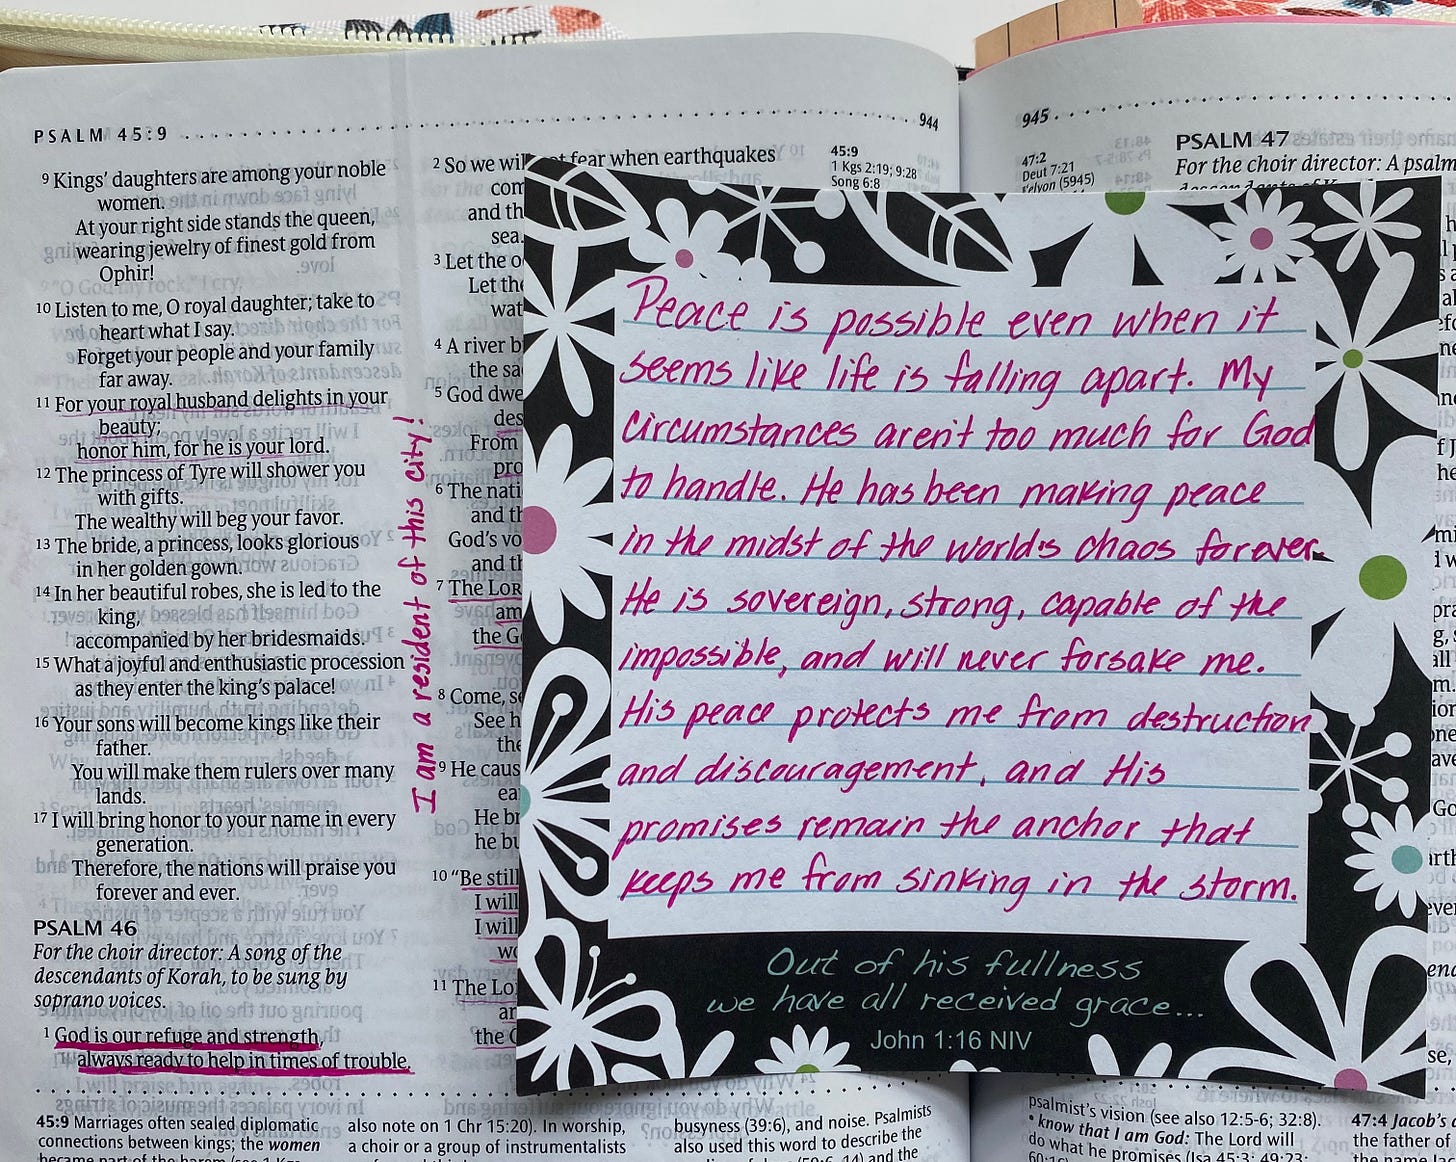 PSALM 45:9
944
9 Kings' daughters are among your noble
women.
At your right side stands the queen,
wearing jewelry of finest gold from
Ophir!
10 Listen to me, O royal daughter; take to
heart what I say.
Forget your people and your family
far away.
11 For your royal husband delights in your
beauty;
honor him, for he is your lord.
12 The princess of Tyre will shower you
with gifts.
The wealthy will beg your favor.
13 The bride, a princess, looks glorious
in her golden gown.
14 In her beautiful robes, she is led to the
king,
accompanied by her bridesmaids.
15 What a joyful and enthusiastic procession
as they enter the king's palace!
16 Your sons will become kings like their
father.
You will make them rulers over many
lands.
17 I will bring honor to your name in every
generation.
Therefore, the nations will praise you
forever and ever.
PSALM 46
For the choir director: A song of the
descendants of Korah, to be sung by
soprano voices.
1 God is our refuge and strength,
always ready to help in times of trouble.
I am a resident of this city!
2 So we will fear when earthquakes
and th
sea.
3 Let the
Let the
4 A river
the
5 God
From
6 The
and th
God's
and th
7 The LORD
the
8 Come,
See
9 He
He
he
10 "Be still
I will
I will
11 The
the
45:9
1 Kgs 2:19; 9:28
Song 6:8
945
47:2
Deut 7:21
(5945)
PSALM 47
For the choir director: A psalm
Peace is possible even when it
seems like life is falling apart. My
circumstances aren't too much for God
to handle. He has been making peace
in the midst of the world's chaos forever.
He is sovereign, strong, capable of the
impossible, and will never forsake me.
His peace protects me from destruction
and discouragement, and His
promises remain the anchor that
keeps me from sinking in the storm.
Out of his fullness
we have all received grace...
John 1:16 NIV
45:9 Marriages often sealed diplomatic
connections between kings; the women
also note on 1 Chr 15:20). In worship,
a choir or a group of instrumentalists
busyness (39:6), and noise. Psalmists
also used this word to describe the
psalmist's vision (see also 12:5-6; 32:8).
• know that I am God: The Lord will
do what he promises (Isa 45:3; 49:23;
47:4 Jacob's
the father of